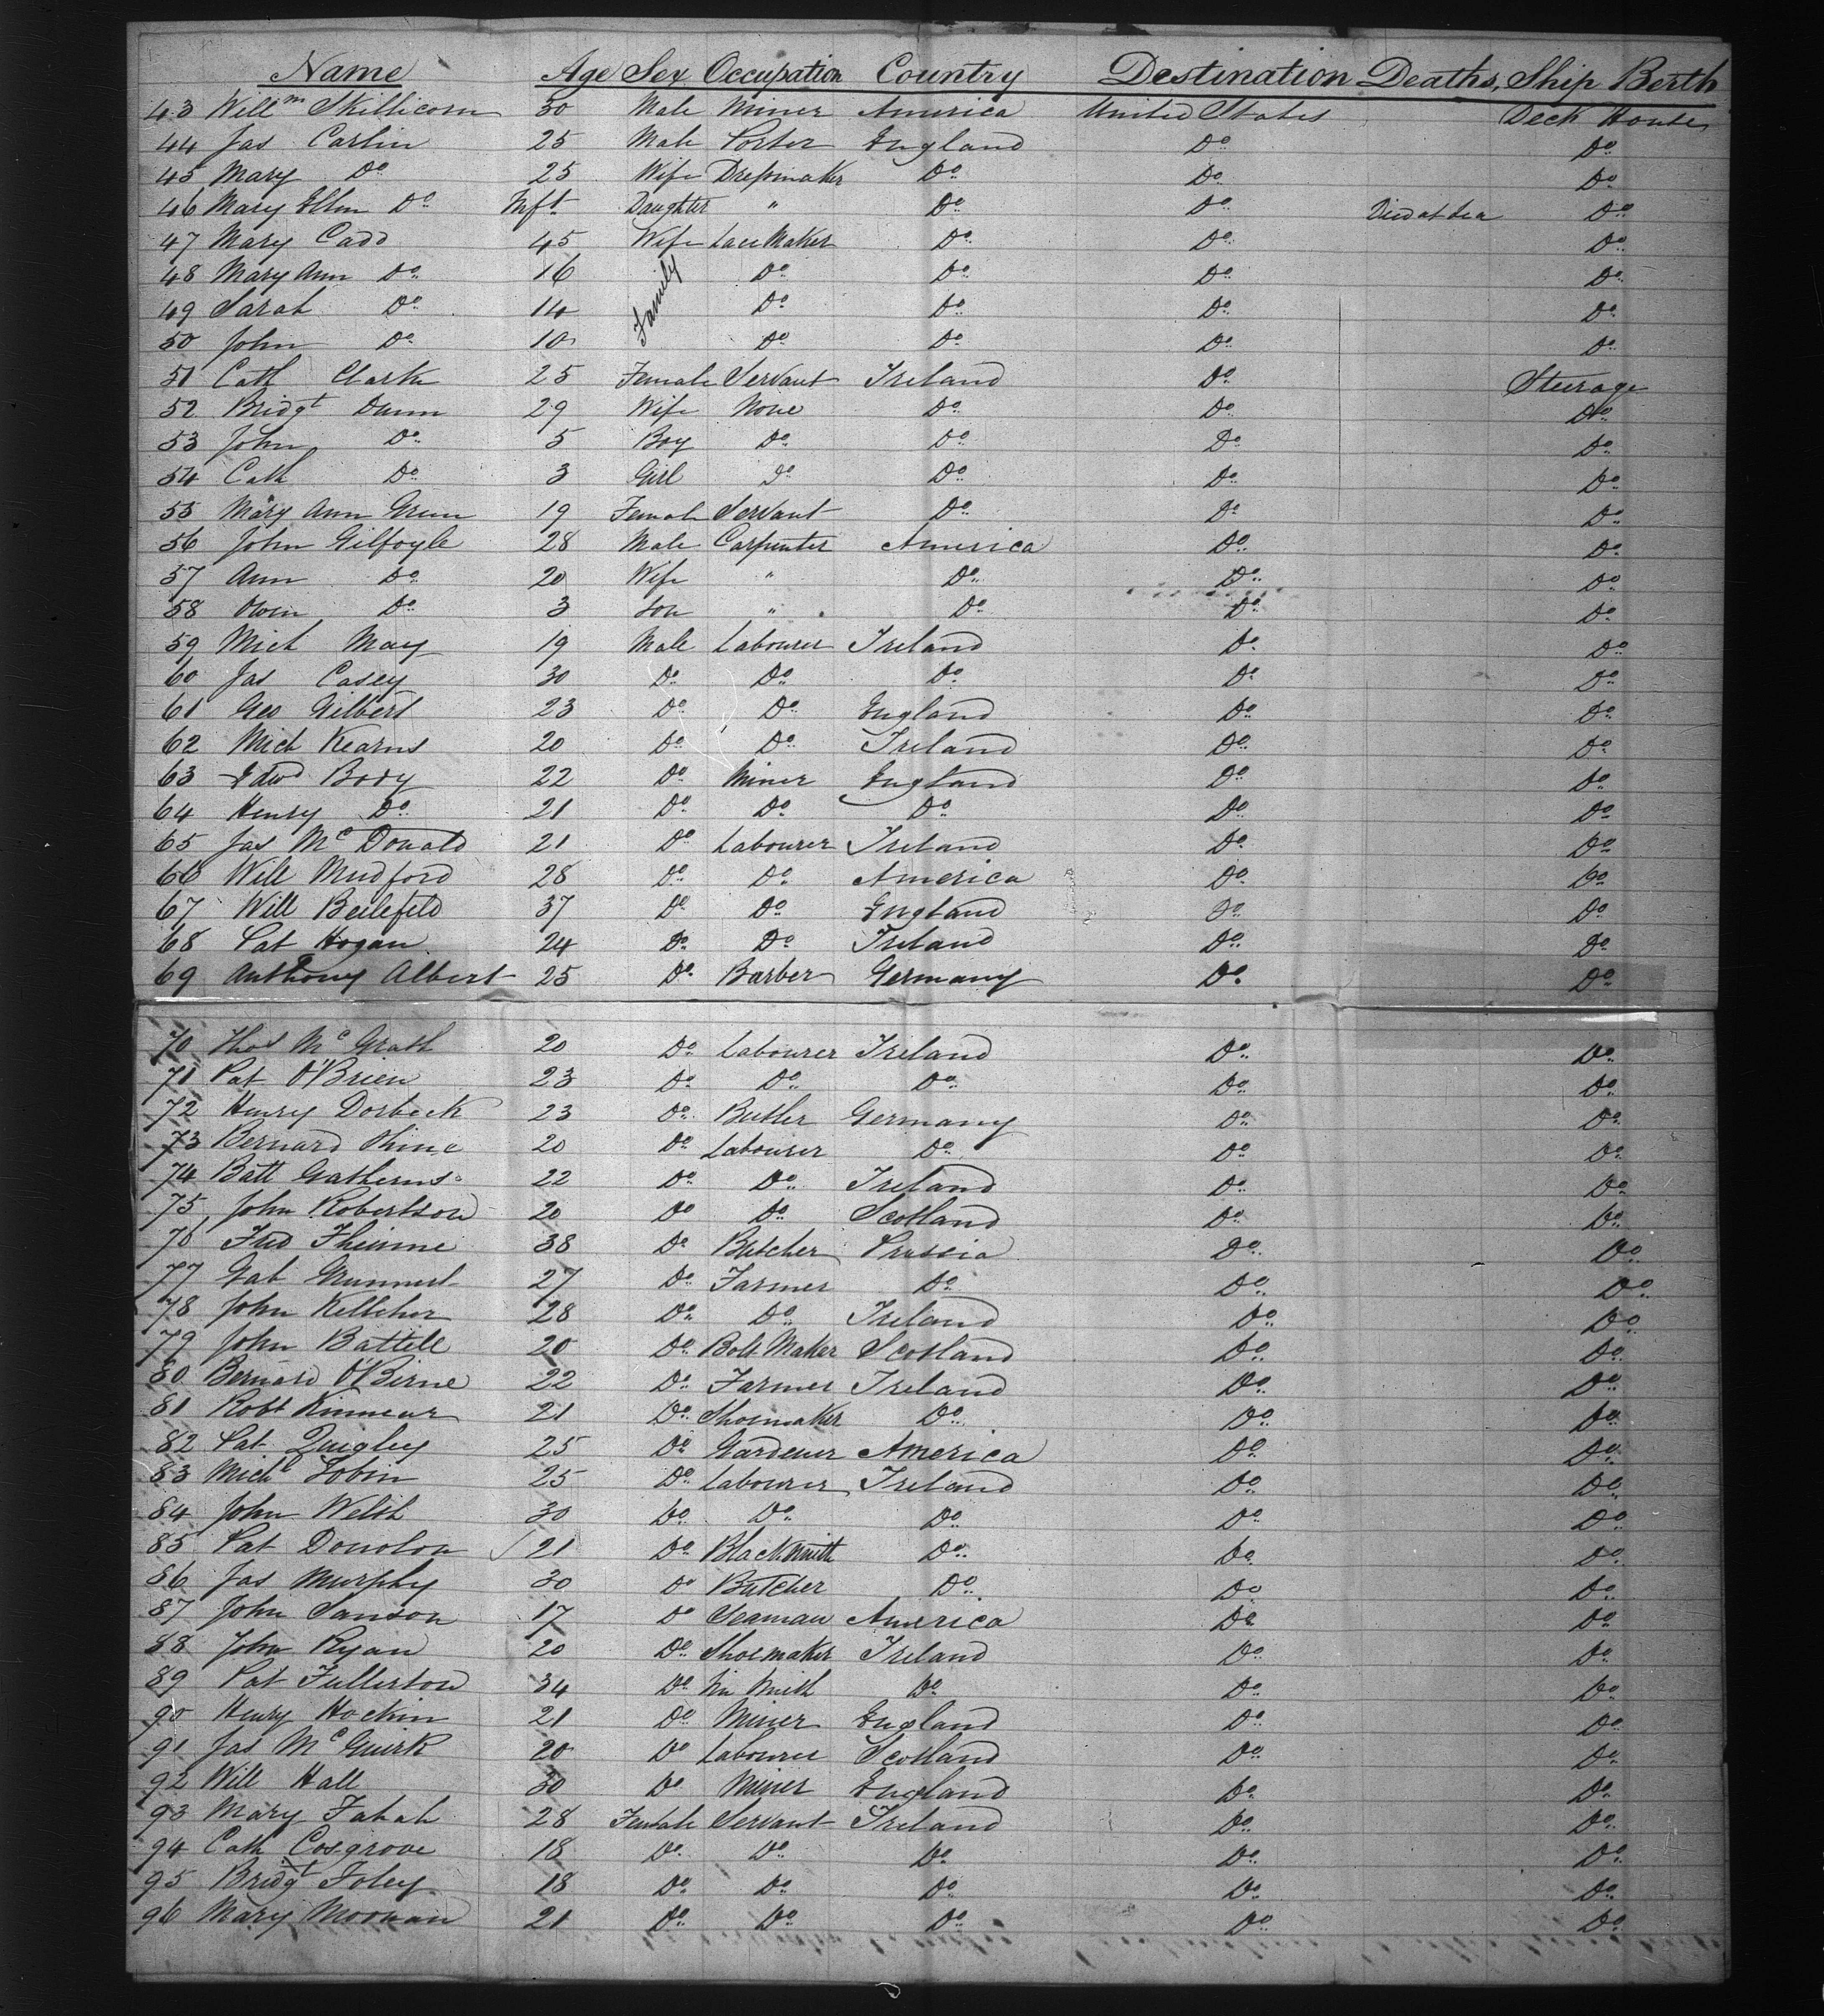 Name Age Sex Occupation Country Destination Deaths, Ship Berth
43 Willm Skillicorn 30 Male Miner America United States Deck House
44 Jas Carlin 25 Male Porter England Do Do
45 Mary Do 25 Wife Dressmaker Do Do Do
46 Mary Ellen Do Inft Daughter " Do Do Died at Sea Do
47 Mary Cadd 45 Wife Lace Maker Do Do Do
48 Mary Ann Do 16 Family Do Do Do Do
49 Sarah Do 14 Do Do Do Do
50 John Do 10 Do Do Do Do
51 Cath Clark 25 Female Servant Ireland Do Steerage
52 Bridgt Dunn 29 Wife None Do Do Do
53 John Do 5 Boy Do Do Do Do
54 Cath Do 3 Girl Do Do Do Do
55 Mary Ann Green 19 Female Servant Do Do Do
56 John Gilfoyle 28 Male Carpenter America Do Do
57 Ann Do 20 Wife " Do Do Do
58 Owen Do 3 Son " Do Do Do
59 Mich May 19 Male Labourer Ireland Do Do
60 Jas Casey 30 Do Do Do Do Do
61 Geo Gilbert 23 Do Do England Do Do
62 Mich Kearns 20 Do Do Ireland Do Do
63 Edwd Body 22 Do Miner England Do Do
64 Henry Do 21 Do Do Do Do Do
65 Jas McDonald 21 Do Labourer Ireland Do Do
66 Will Mudford 28 Do Do America Do Do
67 Will Beilefeld 37 Do Do England Do Do
68 Pat Hogan 24 Do Do Ireland Do Do
69 Anthony Albert 25 Do Barber Germany Do Do
70 Thos McGrath 20 Do Labourer Ireland Do Do
71 Pat O'Brien 23 Do Do Do Do Do
72 Henry Dorbeck 23 Do Butler Germany Do Do
73 Bernard 20 Do Labourer Do Do Do
74 Batt 22 Do Do Ireland Do Do
75 John Robertson 20 Do Do Scotland Do Do
76 Fred Thieme 38 Do Butcher Prussia Do Do
77 27 Do Farmer Do Do Do
78 John Kelleher 28 Do Do Ireland Do Do
79 John Battell 20 Do Bolt Maker Scotland Do Do
80 Bernard O'Birne 22 Do Farmer Ireland Do Do
81 Robt Kinnear 21 Do Shoemaker Do Do Do
82 Pat Quigley 25 Do Gardener America Do Do
83 Michl Tobin 25 Do Labourer Ireland Do Do
84 John Welsh 30 Do Do Do Do Do
85 Pat Donolon 21 Do Blacksmith Do Do Do
86 Jas Murphy 30 Do Butcher Do Do Do
87 John Sanson 17 Do Seaman America Do Do
88 John Ryan 20 Do Shoemaker Ireland Do Do
89 Pat Fullerton 34 Do Tin Smith Do Do Do
90 Henry Hochin 21 Do Miner England Do Do
91 Jas McGuirk 20 Do Labourer Scotland Do Do
92 Will Hall 30 Do Miner England Do Do
93 Mary Fahah 28 Female Servant Ireland Do Do
94 Cath Cosgrove 18 Do Do Do Do Do
95 Bridgt Foley 18 Do Do Do Do Do
96 Mary Moonan 21 Do Do Do Do Do